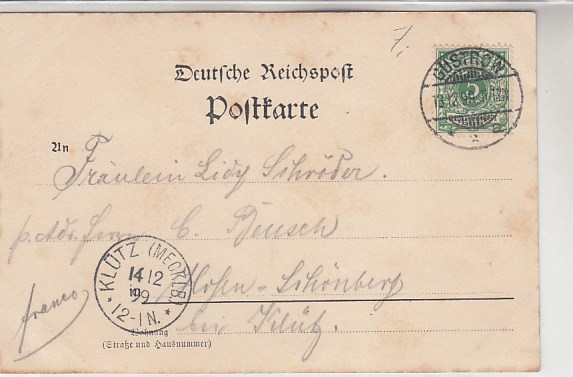 7.
Deutsche Reichspost
Postkarte
GÜSTROW
5
13 12 99
An
Fräulein Lidy Schröder.
p. Adr. Herrn C. Beusch
KLÜTZ (MECKLB)
14 12
99
12-1N.
Hohen-Schönberg
bei Klütz.
franco
Wohnung
(Straße und Hausnummer)